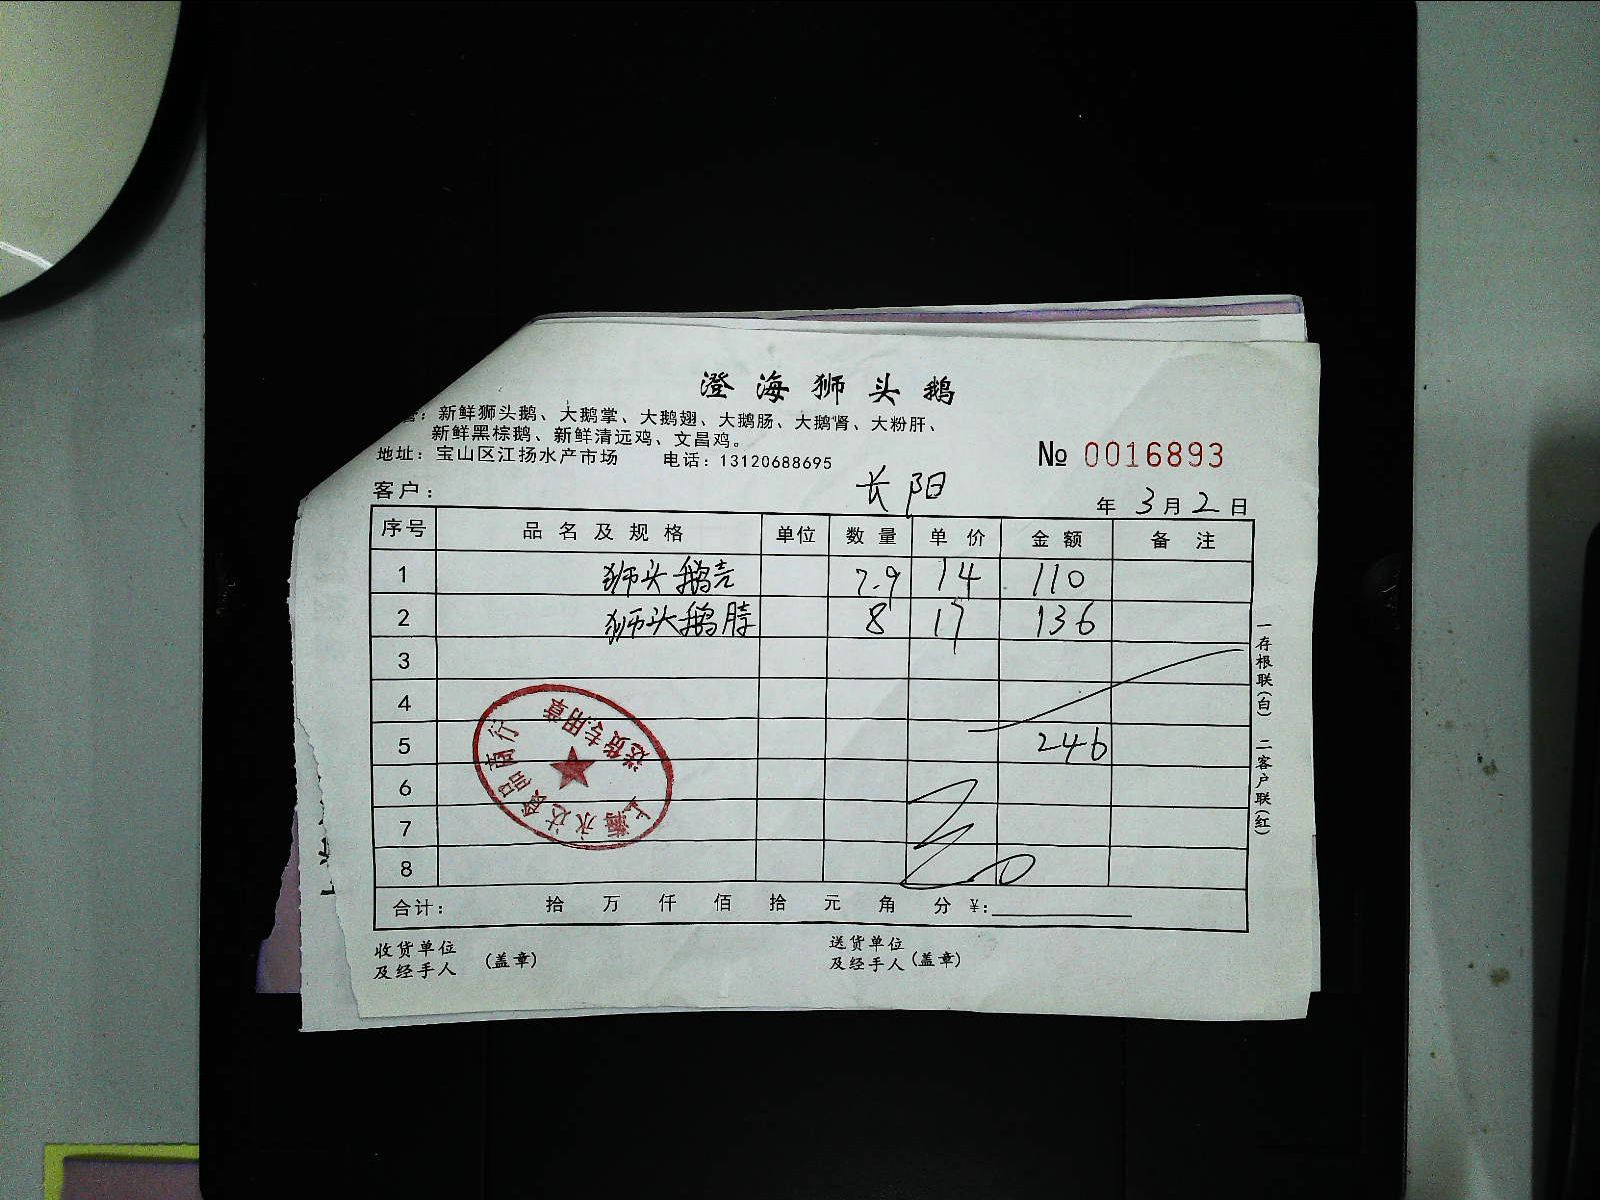 澄海狮头鹅
营：新鲜狮头鹅、大鹅掌、大鹅翅、大鹅肠、大鹅肾、大粉肝、
新鲜黑棕鹅、新鲜清远鸡、文昌鸡。
地址：宝山区江扬水产市场 电话：13120688695
№ 0016893
客户： 长阳 年 3月2日
序号 品名及规格 单位 数量 单价 金额 备注
1 狮头鹅壳 7.9 14 110
2 狮头鹅脖 8 17 136
3
4
5 246
6
7
8
合计： 拾 万 仟 佰 拾 元 角 分 ¥：
收货单位
及经手人 （盖章）
送货单位
及经手人（盖章）
一存根联（白） 二客户联（红）
上海永达食品商行
送货专用章